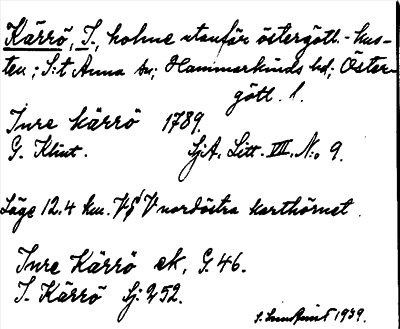 Kärrö, I., holme utanför östergötl.-kus-
ten; S:t Anna sn; Hammarkinds hd; Öster-
götl. l.
Inre Kärrö 1789.
G. Klint. SjA, Litt. VII, N:o 9.
Läge 12.4 km. V nordöstra karthörnet.
Inre Kärrö ek, G. 46.
I. Kärrö Sj: 252.
1939.